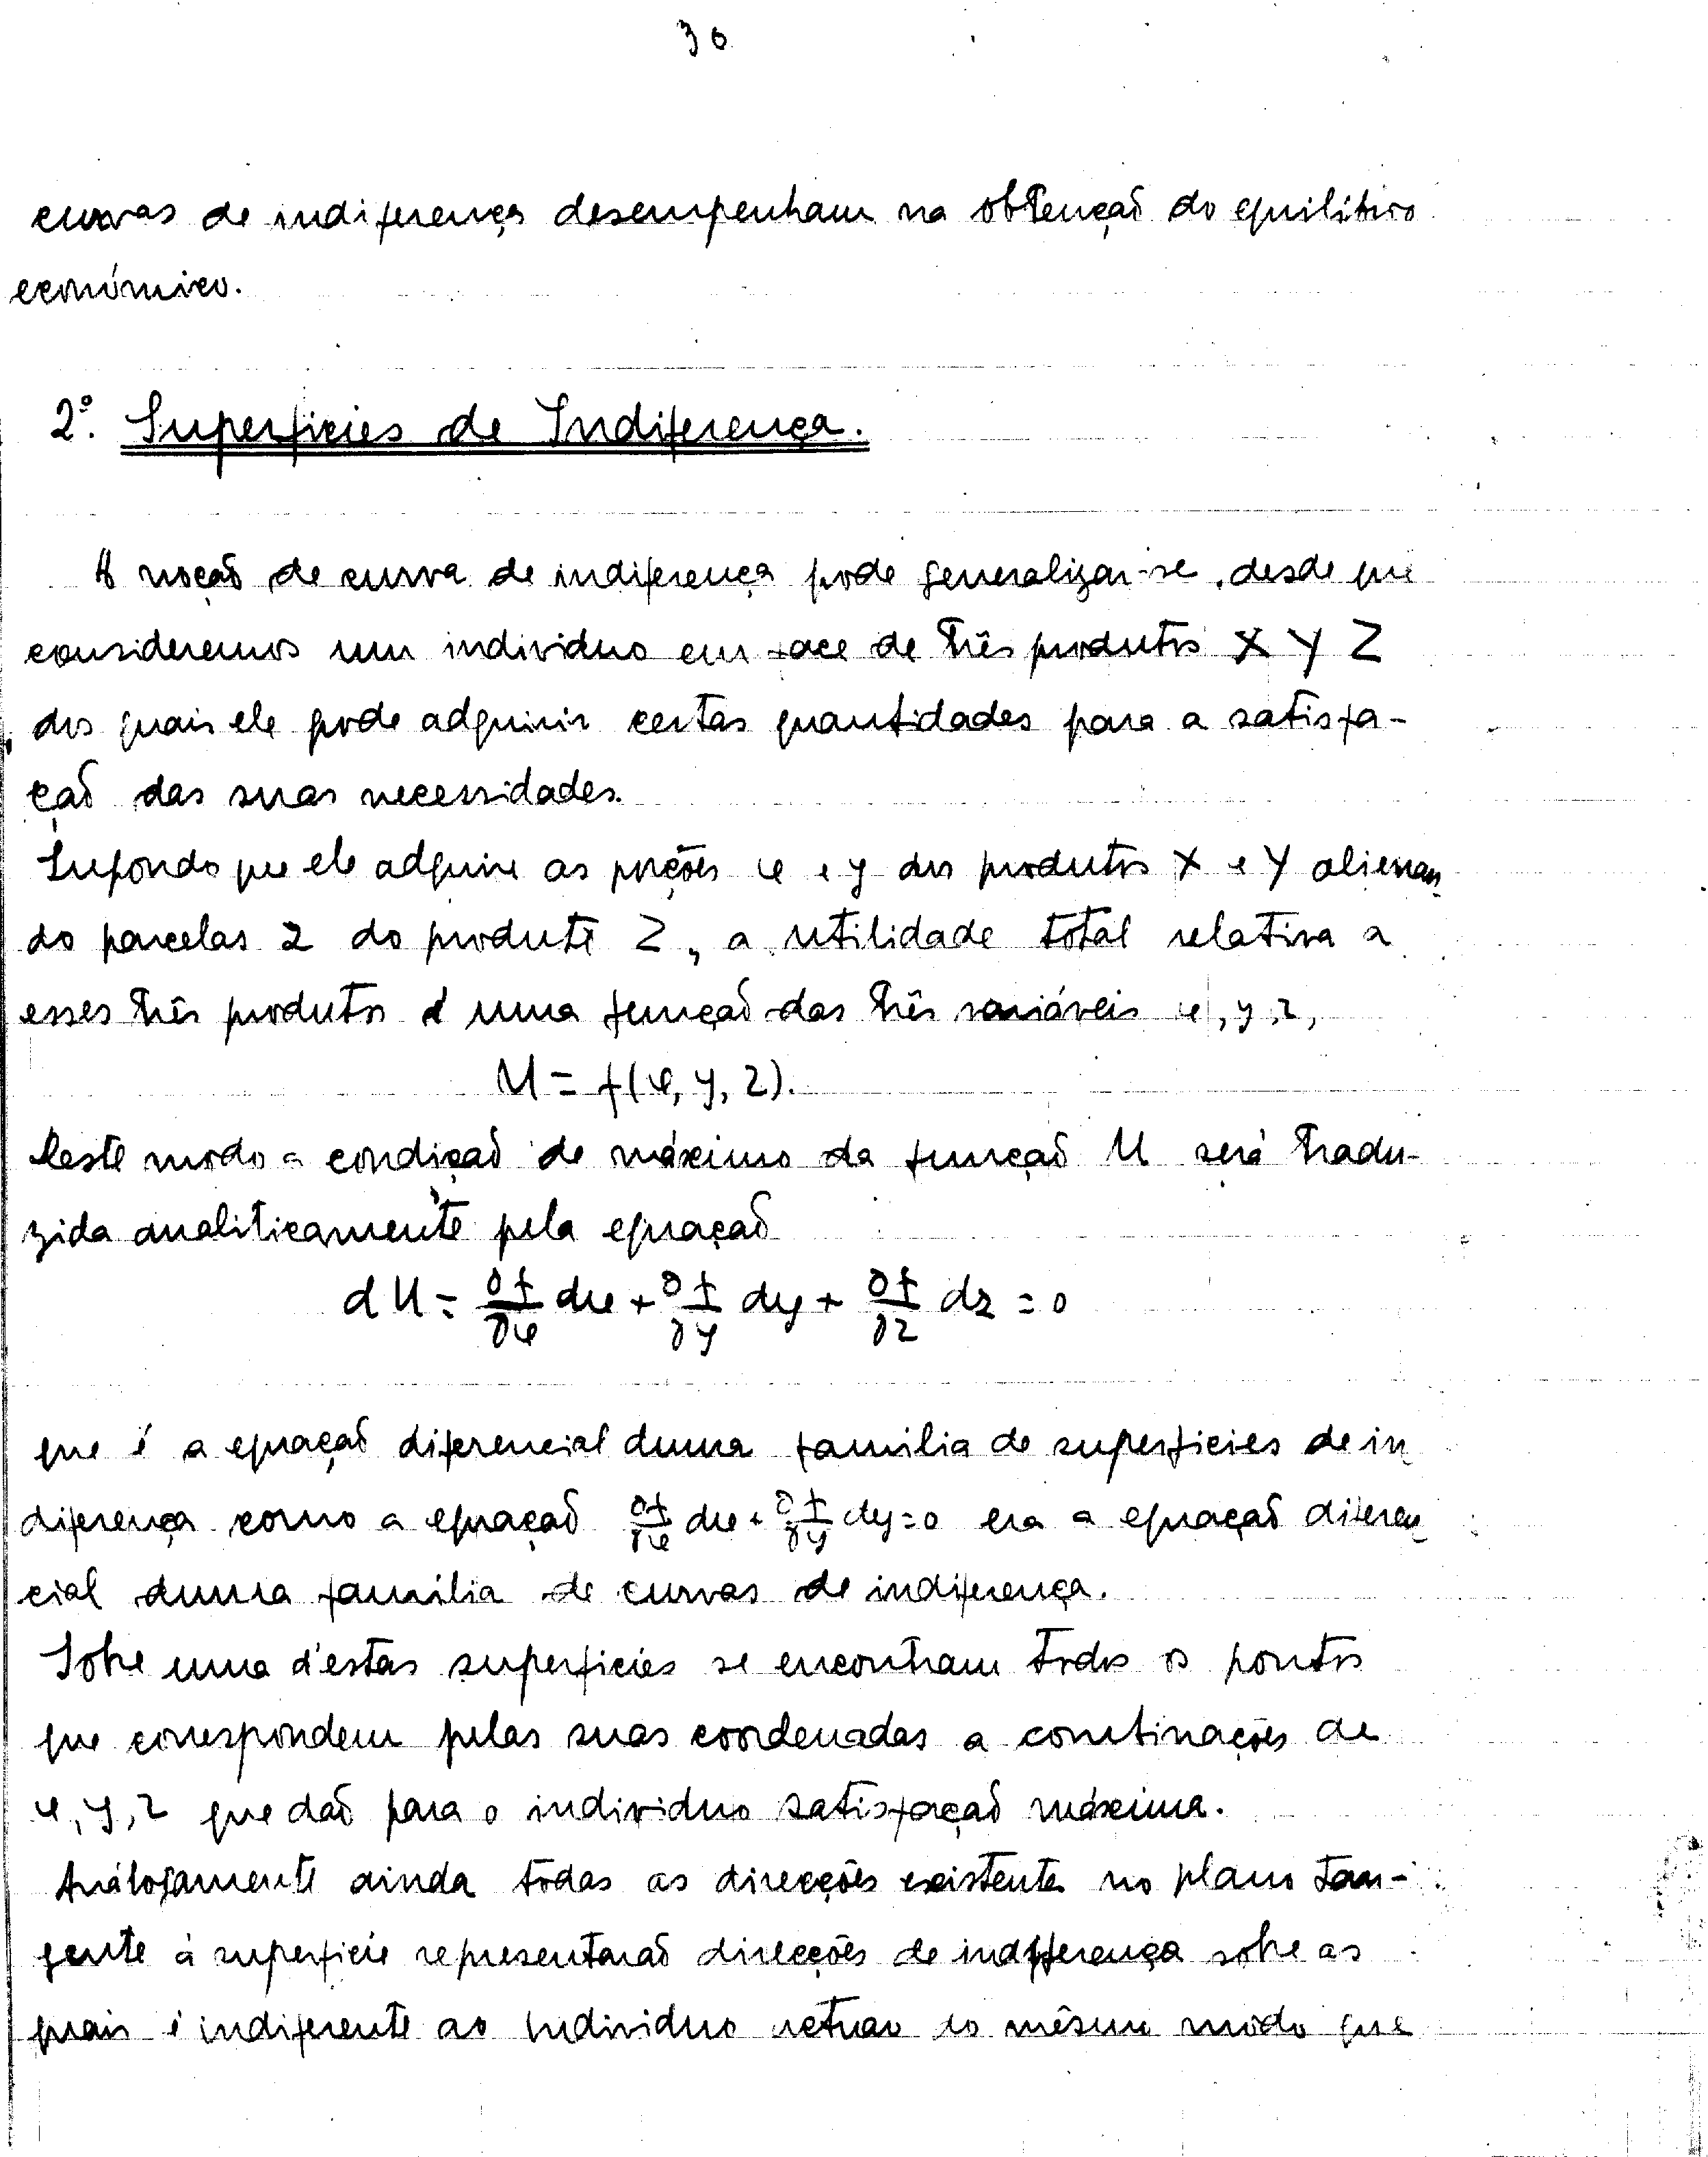 30
curvas de indiferença desempenham na obtenção do equilibrio
económico.
2º. Superficies de Indiferença.
A noção de curva de indiferença pode generalizar-se, desde que
consideremos um individuo em face de três produtos X Y Z
dos quais ele pode adquirir certas quantidades para a satisfa-
ção das suas necessidades.
Supondo que ele adquire as porções x e y dos produtos X e Y alienan
do parcelas z do produto Z, a utilidade total relativa a
esses três produtos é uma função das três variáveis x, y, z,
U = f(x, y, z).
Neste modo a condição de máximo da função U será tradu-
zida analiticamente pela equação
dU = ∂f/∂x dx + ∂f/∂y dy + ∂f/∂z dz = 0
que é a equação diferencial duma familia de superficies de in
diferença como a equação ∂f/∂x dx + ∂f/∂y dy = 0 era a equação diferen
cial duma familia de curvas de indiferença.
Sobre uma d'estas superficies se encontram todos os pontos
que correspondem pelas suas coordenadas a combinações de
x, y, z que dão para o individuo satisfação máxima.
Análogamente ainda todas as direcções existentes no plano tan-
gente à superficie representarão direcções de indifferença sobre as
quais é indiferente ao individuo actuar do mêsmo modo que